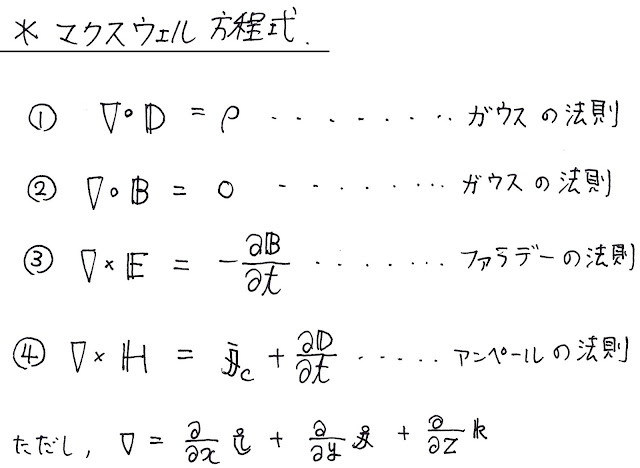 * マクスウェル方程式.
① ∇∘𝔻 = ρ ‥‥‥‥ ガウスの法則
② ∇∘𝔹 = 0 ‥‥‥‥ ガウスの法則
③ ∇×𝔼 = -∂𝔹/∂t ‥‥‥‥ ファラデーの法則
④ ∇×ℍ = 𝕛c + ∂𝔻/∂t ‥‥‥ アンペールの法則
ただし, ∇ = ∂/∂x 𝕚 + ∂/∂y 𝕛 + ∂/∂z 𝕜